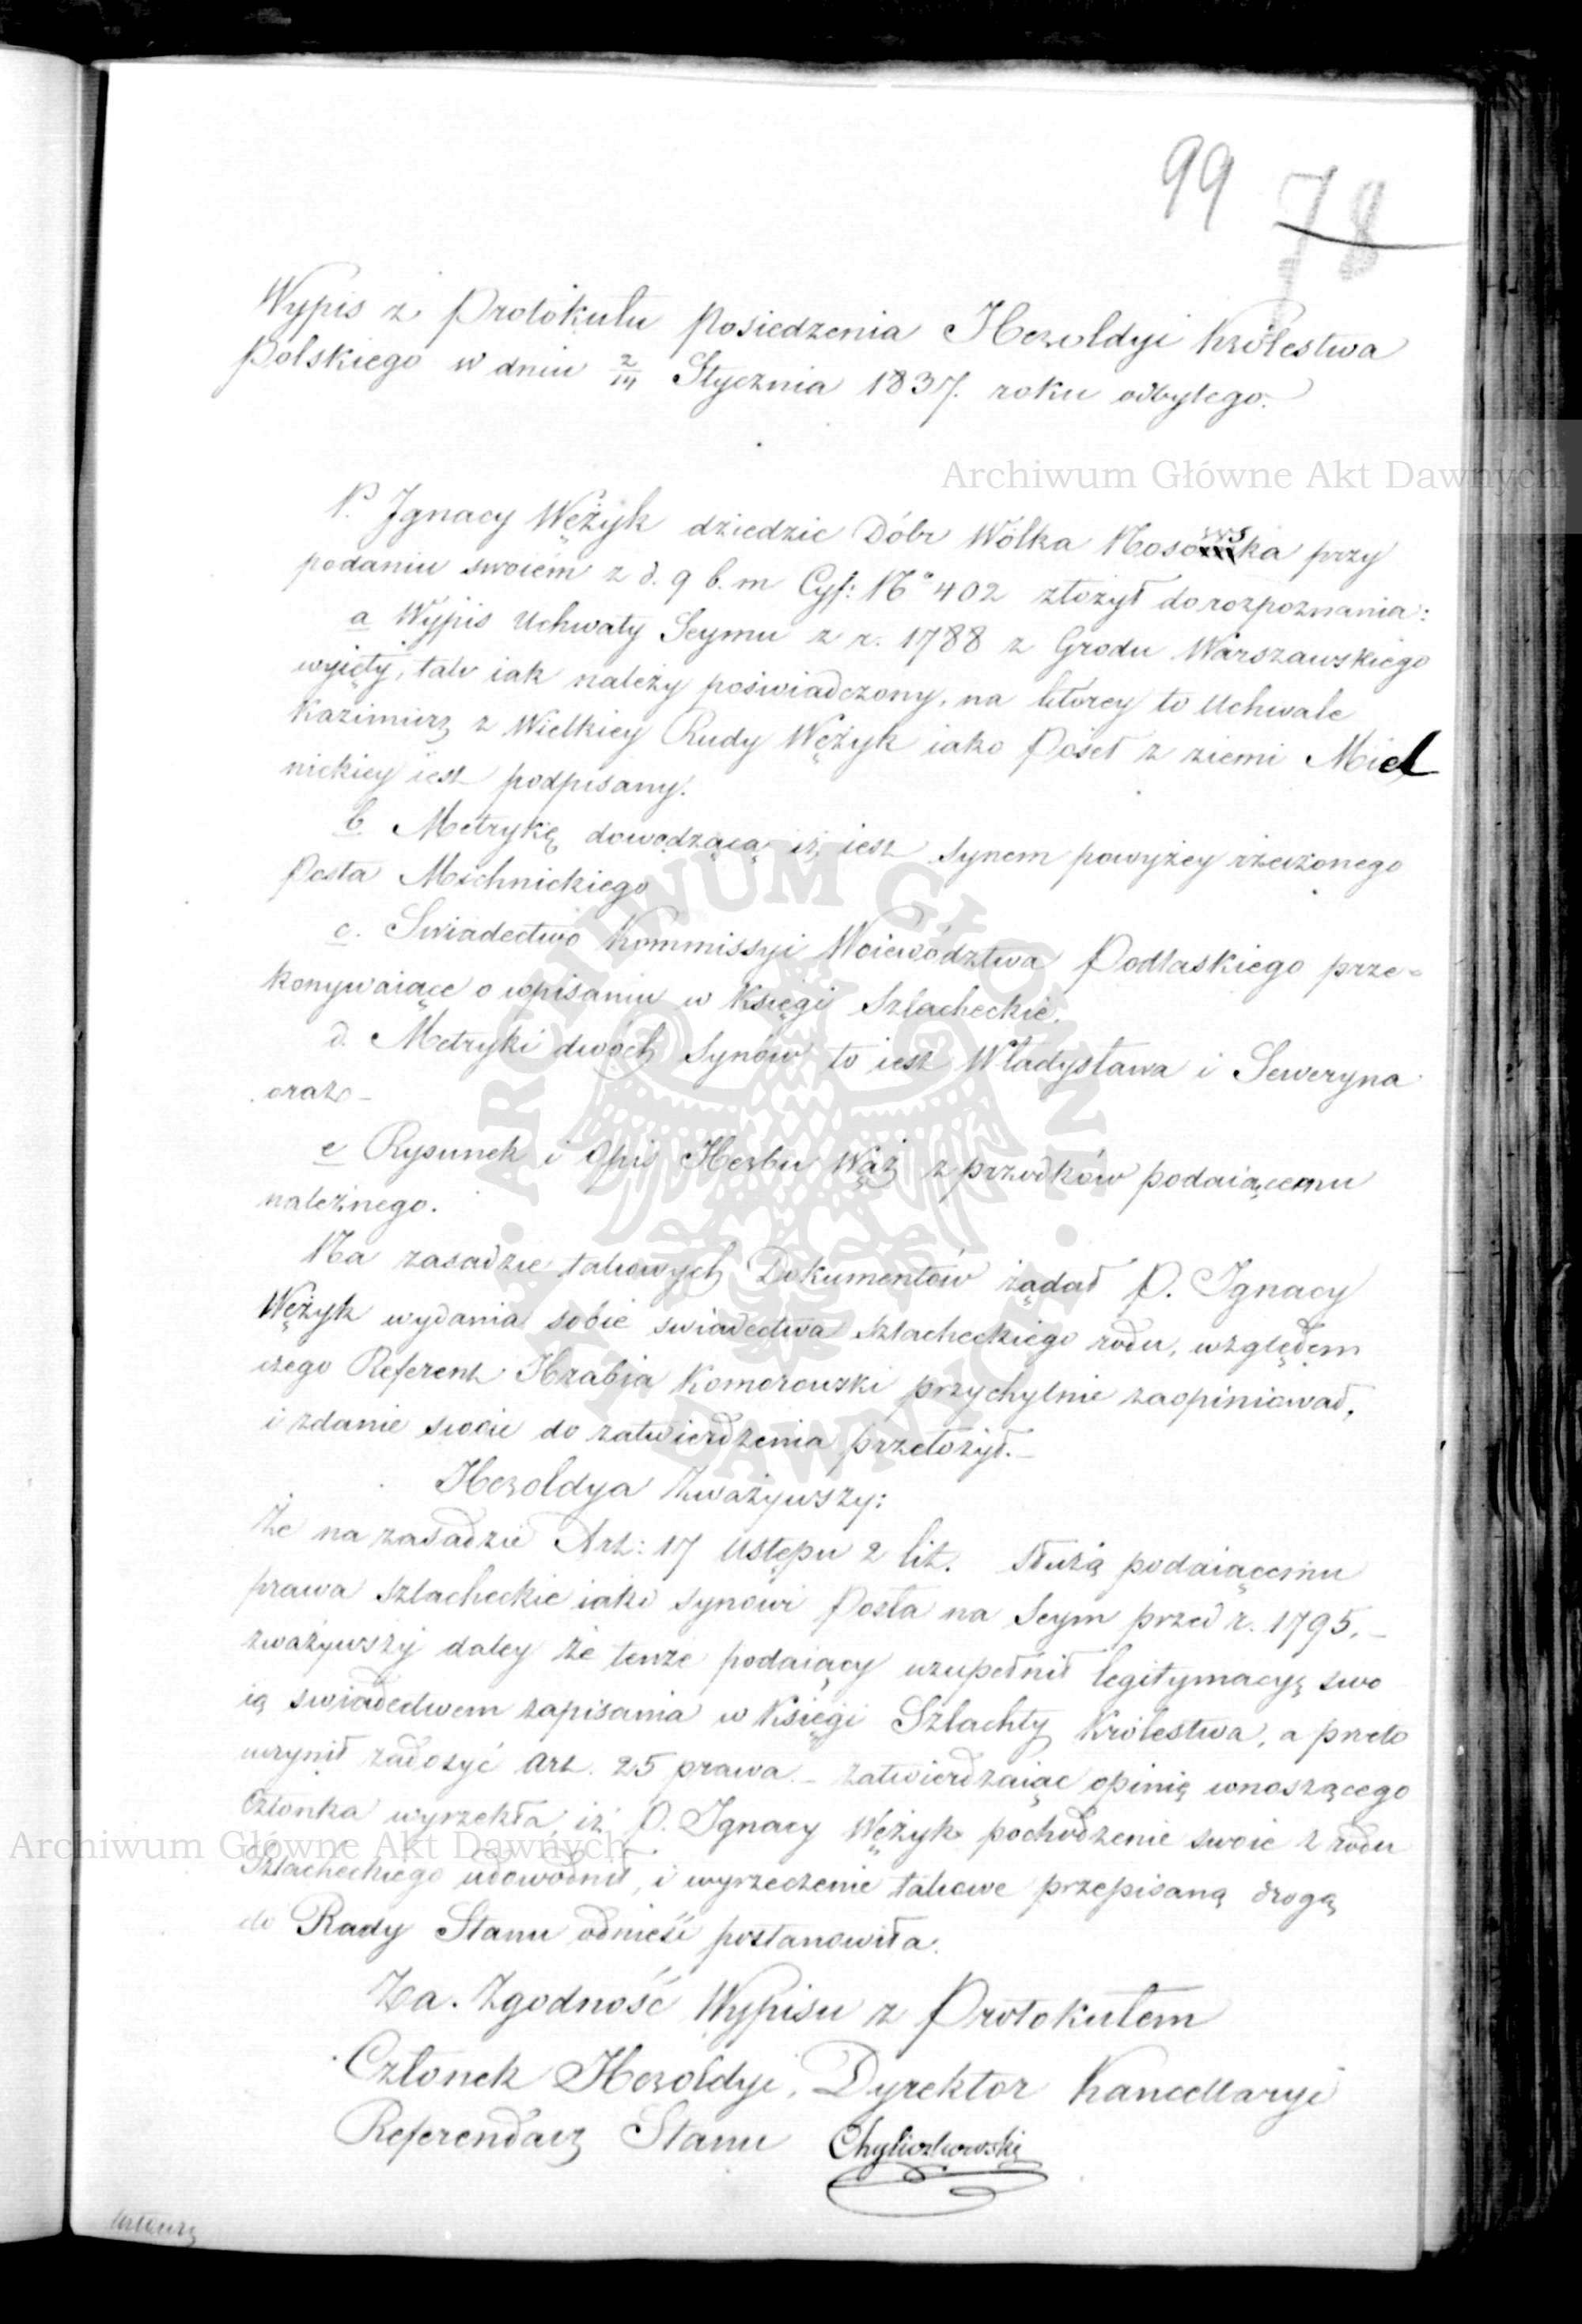 99 78
Wypis z Protokułu Posiedzenia Heroldyi Królestwa
Polskiego w dniu 2/14 Stycznia 1837. roku odbytego.
Archiwum Główne Akt Dawnych
P. Jgnacy Wężyk dziedzic Dóbr Wólka Nosowska przy
podaniu swoiém z d. 9 b. m Cyf: No 402 złożył do rozpoznania:
a Wypis Uchwały Seymu z r. 1788 z Grodu Warszawskiego
wyięty, tak iak należy poświadczony, na którey to Uchwale
Kazimierz z Wielkiey Rudy Wężyk iako Poseł z ziemi Miel
nickiey iest podpisany.
b Metrykę dowodzącą iż iest synem powyżey rzeczonego
Posła Mielnickiego
c. Swiadectwo Kommissyi Woiewództwa Podlaskiego prze-
konywaiące o wpisaniu w Księgi Szlacheckie.
d. Metryki dwóch Synów to iest Władysława i Seweryna
oraz –
e Rysunek i Opis Herbu Wąż z przodków podaiącemu
należnego.
Na zasadzie takowych Dokumentów żądał P. Ignacy
Wężyk wydania sobie swiadectwa szlacheckiego rodu, względem
czego Referent Hrabia Komorowski przychylnie zaopiniował,
i zdanie swoie do zatwierdzenia przełożył. –
Heroldya Zważywszy:
Że na zasadzie Art: 17 Ustępu 2 lit. służą podaiącemu
prawa szlacheckie iako synowi Posła na Seym przed r. 1795. –
zważywszy daley że tenże podaiący uzupełnił legitymacyę swo
ią swiadectwem zapisania w Księgi Szlachty Królestwa, a przeto
uczynił zadosyć Art. 25 prawa. – zatwierdzaiąc opinię wnoszącego
Członka wyrzekła, iż P. Ignacy Wężyk pochodzenie swoie z rodu
Archiwum Główne Akt Dawnych
Szlacheckiego udowodnił, i wyrzeczenie takowe przepisaną drogą
do Rady Stanu odnieść postanowiła.
Za Zgodność Wypisu z Protokułem
Członek Heroldyi, Dyrektor Kancellaryi
Referendarz Stanu Chyliczkowski
ARCHIWUM GŁÓWNE · AKT DAWNYCH ·